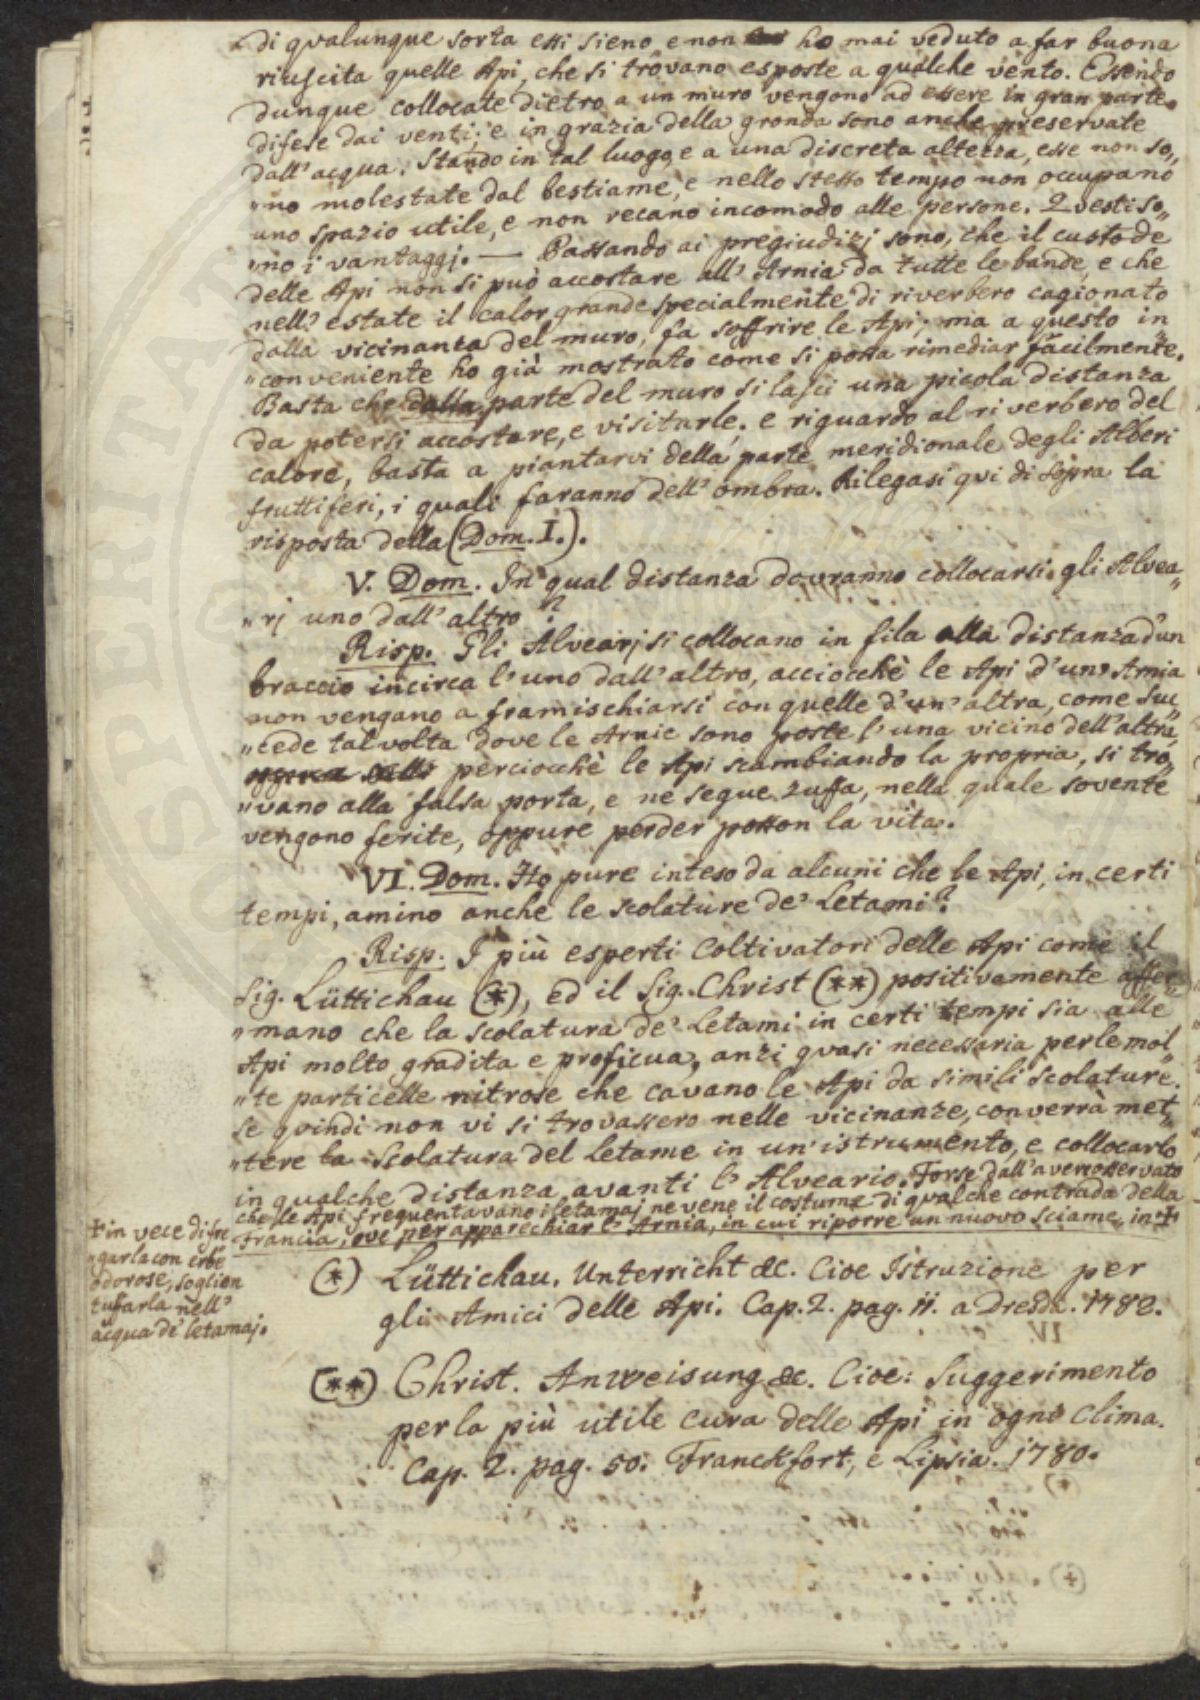 di qualunque sorta essi sieno, e non ho mai veduto a far buona
riuscita quelle Api, che si trovano esposte a qualche vento. Essendo
dunque collocate dietro a un muro vengono ad essere in gran parte
difese dai venti; e in grazia della gronda sono anche preservate
dall' acqua. Stando in tal luogo, e a una discreta altezza, esse non so„
„no molestate dal bestiame, e nello stesso tempo non occupano
uno spazio utile, e non recano incomodo alle persone. Questi so„
„no i vantaggj. — Passando ai pregiudizj sono, che il custode
delle Api non si può accostare all' Arnia da tutte le bande, e che
nell' estate il calor grande specialmente di riverbero cagionato
dalla vicinanza del muro, fa soffrire le Api; ma a questo in„
„conveniente ho già mostrato come si possa rimediar facilmente.
Basta che dalla parte del muro si lasci una picola distanza
da potersi accostare, e visitarle; e riguardo al riverbero del
calore, basta a piantarvi della parte meridionale degli Alberi
fruttiferi, i quali faranno dell' ombra. Rilegasi qvi di sopra la
risposta della (Dom. I.).
V. Dom. In qual distanza dovranno collocarsi gli Alvea„
„rj uno dall' altro?
Risp. Gli Alvearj si collocano in fila alla distanza d'un
braccio incirca l' uno dall' altro, acciocchè le Api d'un' Arnia
non vengano a framischiarsi con quelle d'un' altra, come suc„
„cede talvolta dove le Arnie sono poste l' una vicino dell' altra,
perciocchè le Api scambiando la propria, si tro„
„vano alla falsa porta, e ne segue zuffa, nella quale sovente
vengono ferite, oppure perder posson la vita.
VI. Dom. Ho pure inteso da alcuni che le Api, in certi
tempi, amino anche le scolature de' Letami?
Risp. I più esperti Coltivatori delle Api come il
Sig. Lüttichau (*), ed il Sig. Christ (**) positivamente affer„
„mano che la scolatura de' Letami in certi tempi sia alle
Api molto gradita e proficua, anzi qvasi necessaria per le mol„
„te particelle nitrose che cavano le Api da simili scolature.
Se qvindi non vi si trovassero nelle vicinanze, converrà met„
„tere la scolatura del Letame in un' istrumento, e collocarlo
in qualche distanza avanti l' Alveario. Forse dall' aver osservato
che le Api frequentavano i letamaj ne vene il costume di qualche contrada della
Francia, ove per apparechiar l' Arnia, in cui riporre un nuovo sciame, in +
+ in vece di fre„
„garla con erbe
odorose, soglion
tuffarla nell'
acqua de' letamaj.
(*) Lüttichau. Unterricht &c. Cioe Istruzione per
gli Amici delle Api. Cap. 2. pag. 11. a Dresda. 1782.
(**) Christ. Anweisung &c. Cioe: Suggerimento
per la più utile cura delle Api in ogni Clima.
Cap. 2. pag. 50. Franckfort, e Lipsia. 1780.